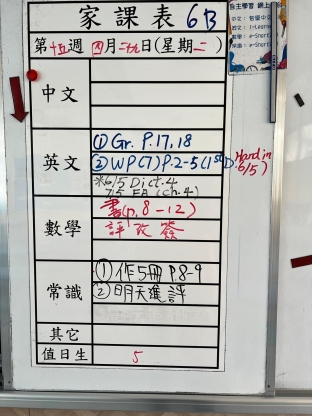 家課表 6B
第十五週 四月二十九日(星期二)
中文
英文
① Gr. P.17,18
② WP(7) P.2-5 (1st D. Hand in 6/5)
※6/5 Dict.4
7/5 FA (ch.4)
數學
書(p.8-12)
評改簽
常識
① 作5冊 P.8-9
② 明天進評
其它
值日生
5
自主學習 網上